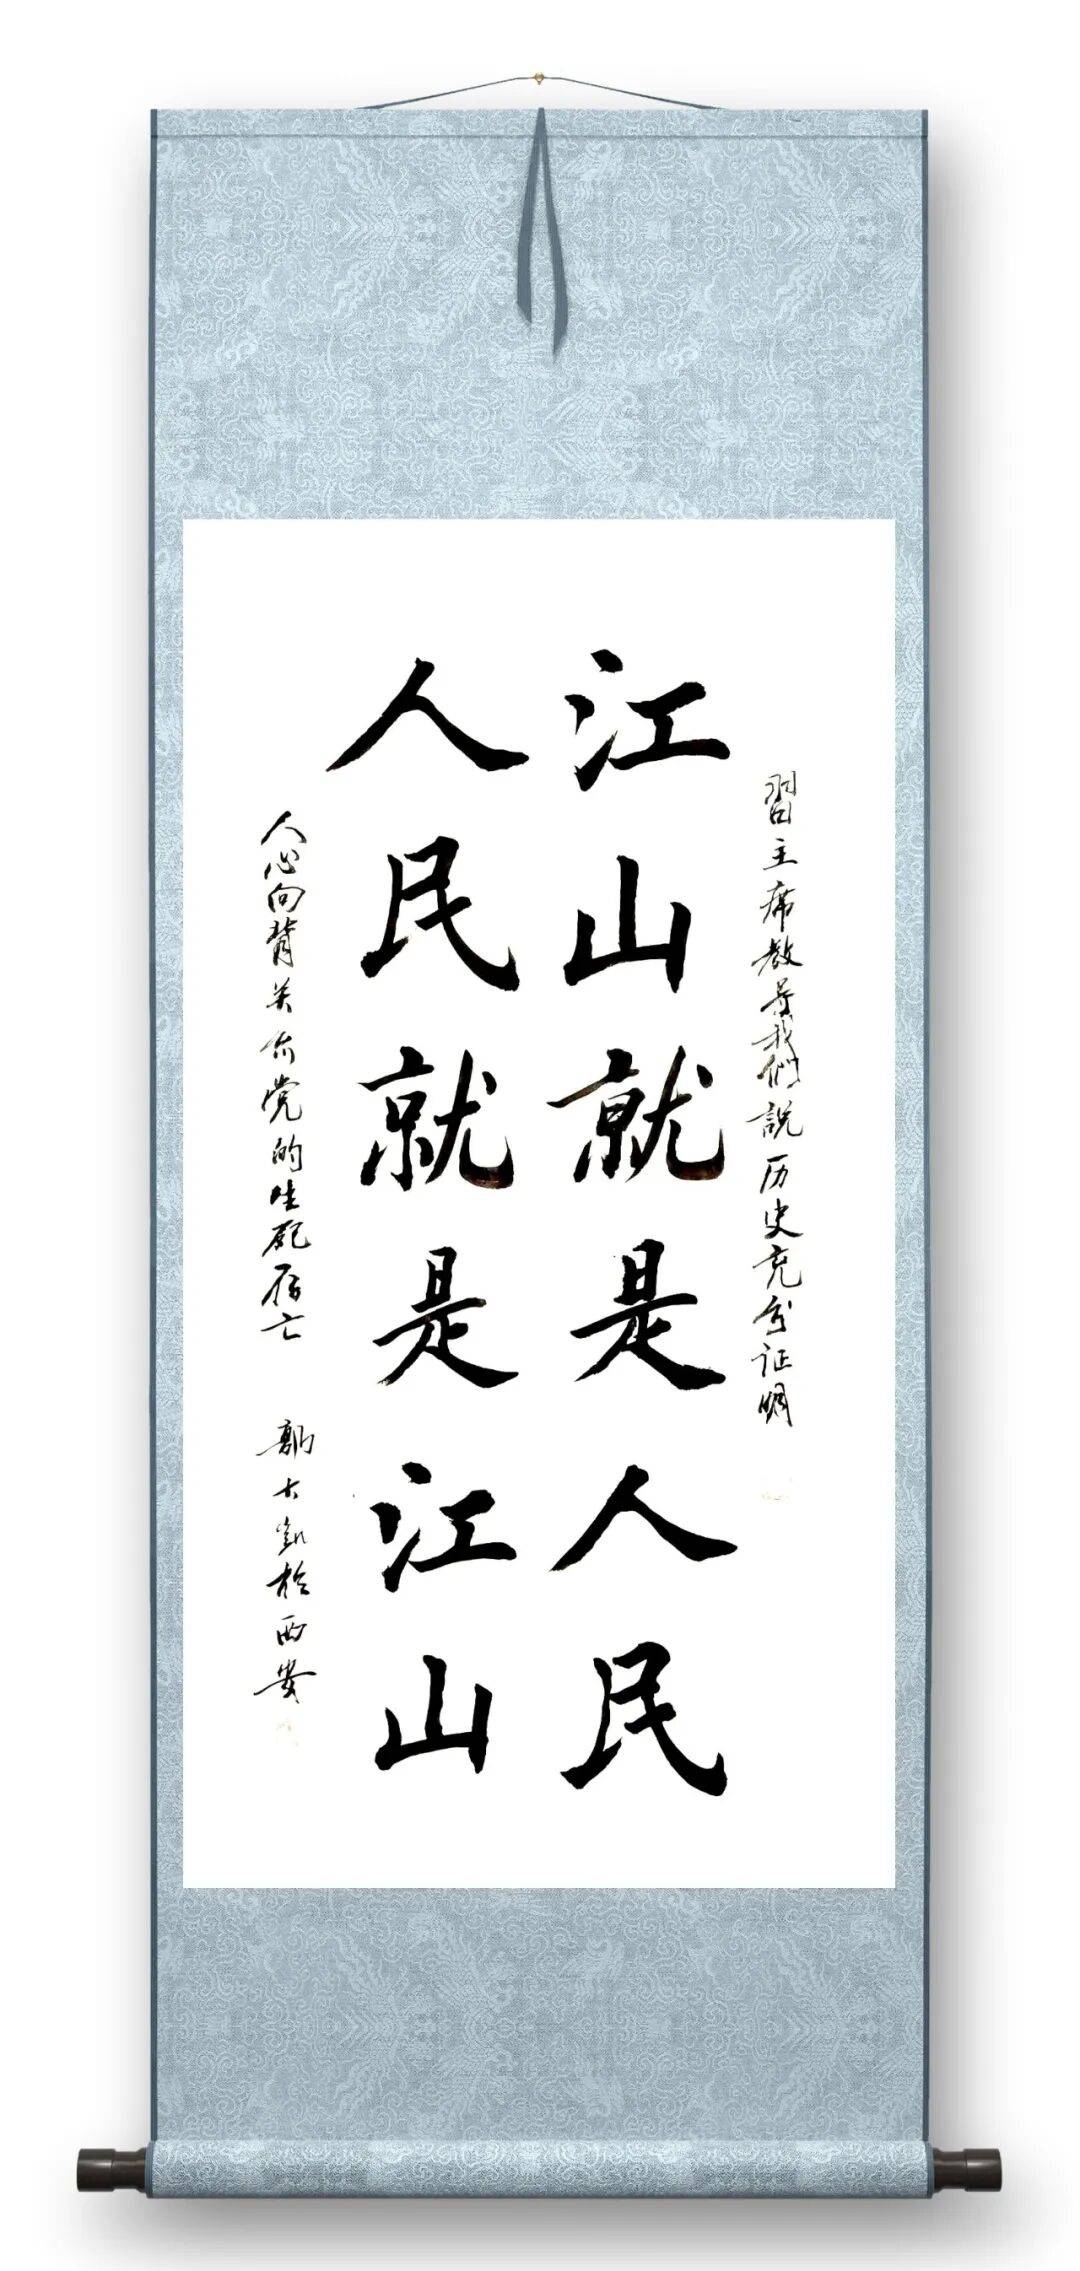 習主席教导我們説历史充分证明
江山就是人民
人民就是江山
人心向背关系党的生死存亡
郭大凱於西安